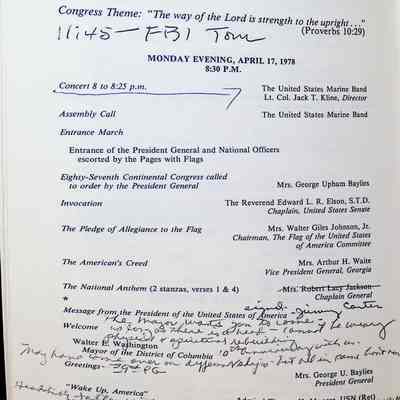 Congress Theme: "The way of the Lord is strength to the upright . . ."
(Proverbs 10:29)
11:45 — FBI Tour
MONDAY EVENING, APRIL 17, 1978
8:30 P.M.
Concert 8 to 8:25 p.m. The United States Marine Band
Lt. Col. Jack T. Kline, Director
Assembly Call The United States Marine Band
Entrance March
Entrance of the President General and National Officers
escorted by the Pages with Flags
Eighty-Seventh Continental Congress called
to order by the President General Mrs. George Upham Baylies
Invocation The Reverend Edward L. R. Elson, S.T.D.
Chaplain, United States Senate
The Pledge of Allegiance to the Flag Mrs. Walter Giles Johnson, Jr.
Chairman, The Flag of the United States
of America Committee
The American's Creed Mrs. Arthur H. Waite
Vice President General, Georgia
The National Anthem (2 stanzas, verses 1 & 4) Mrs. Robert Lacy Jackson
Chaplain General
*
signed - Jimmy Carter
Message from the President of the United States of America
the mayor wants you to come
Welcome
physical & spiritual rebuilding
Walter E. Washington
Mayor of the District of Columbia
may have come over on different
Greetings - 39th PG Mrs. George U. Baylies
President General
"Wake Up, America"
USN (Ret)